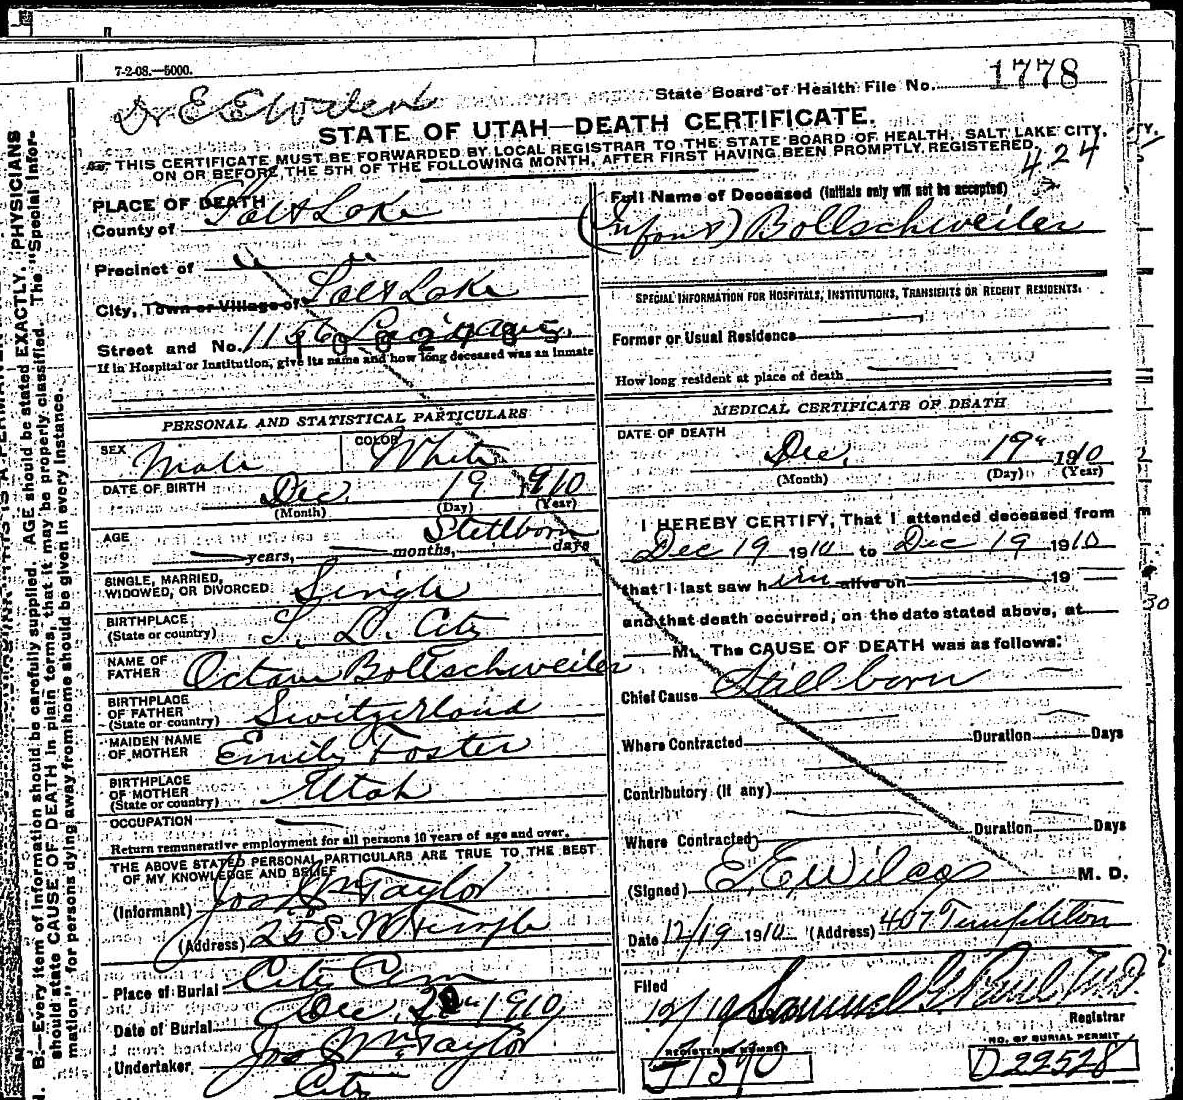 7-2-08.—5000.
State Board of Health File No. 1778
Dr E E Wilcox
STATE OF UTAH—DEATH CERTIFICATE.
THIS CERTIFICATE MUST BE FORWARDED BY LOCAL REGISTRAR TO THE STATE BOARD OF HEALTH, SALT LAKE CITY,
ON OR BEFORE THE 5TH OF THE FOLLOWING MONTH, AFTER FIRST HAVING BEEN PROMPTLY REGISTERED.
424
PLACE OF DEATH
County of Salt Lake
Precinct of
City, Town or Village of Salt Lake
Street and No.
If in Hospital or Institution, give its name and how long deceased was an inmate
PERSONAL AND STATISTICAL PARTICULARS
SEX Male COLOR White
DATE OF BIRTH Dec 19 1910
(Month) (Day) (Year)
AGE Stillborn
years, months, days
SINGLE, MARRIED,
WIDOWED, OR DIVORCED Single
BIRTHPLACE
(State or country) S. L. City
NAME OF
FATHER Octave Bollschweiler
BIRTHPLACE
OF FATHER
(State or country) Switzerland
MAIDEN NAME
OF MOTHER Emily Foster
BIRTHPLACE
OF MOTHER
(State or country) Utah
OCCUPATION
Return remunerative employment for all persons 10 years of age and over.
THE ABOVE STATED PERSONAL PARTICULARS ARE TRUE TO THE BEST
OF MY KNOWLEDGE AND BELIEF
(Informant) Jos Wm Taylor
(Address) 25 S. W Temple
Place of Burial City Cem
Date of Burial Dec. 20 1910
Undertaker Jos Wm Taylor
City
Full Name of Deceased (Initials only will not be accepted)
(Infant) Bollschweiler
SPECIAL INFORMATION FOR HOSPITALS, INSTITUTIONS, TRANSIENTS OR RECENT RESIDENTS.
Former or Usual Residence
How long resident at place of death
MEDICAL CERTIFICATE OF DEATH
DATE OF DEATH
Dec. 19 1910
(Month) (Day) (Year)
I HEREBY CERTIFY, That I attended deceased from
Dec 19 1910 to Dec 19 1910
that I last saw him alive on 19
and that death occurred, on the date stated above, at
M. The CAUSE OF DEATH was as follows:
Chief Cause Stillborn
Where Contracted Duration Days
Contributory (if any)
Where Contracted Duration Days
(Signed) E. E. Wilcox M. D.
Date 12/19 1910 (Address) 407 Templeton
Filed
12/19 Samuel G Paul M.D.
Registrar
REGISTERED NUMBER
J1590
NO. OF BURIAL PERMIT
D22528
B.—Every item of information should be carefully supplied. AGE should be stated EXACTLY. PHYSICIANS
should state CAUSE OF DEATH in plain terms, that it may be properly classified. The "Special Infor-
mation" for persons dying away from home should be given in every instance.
30